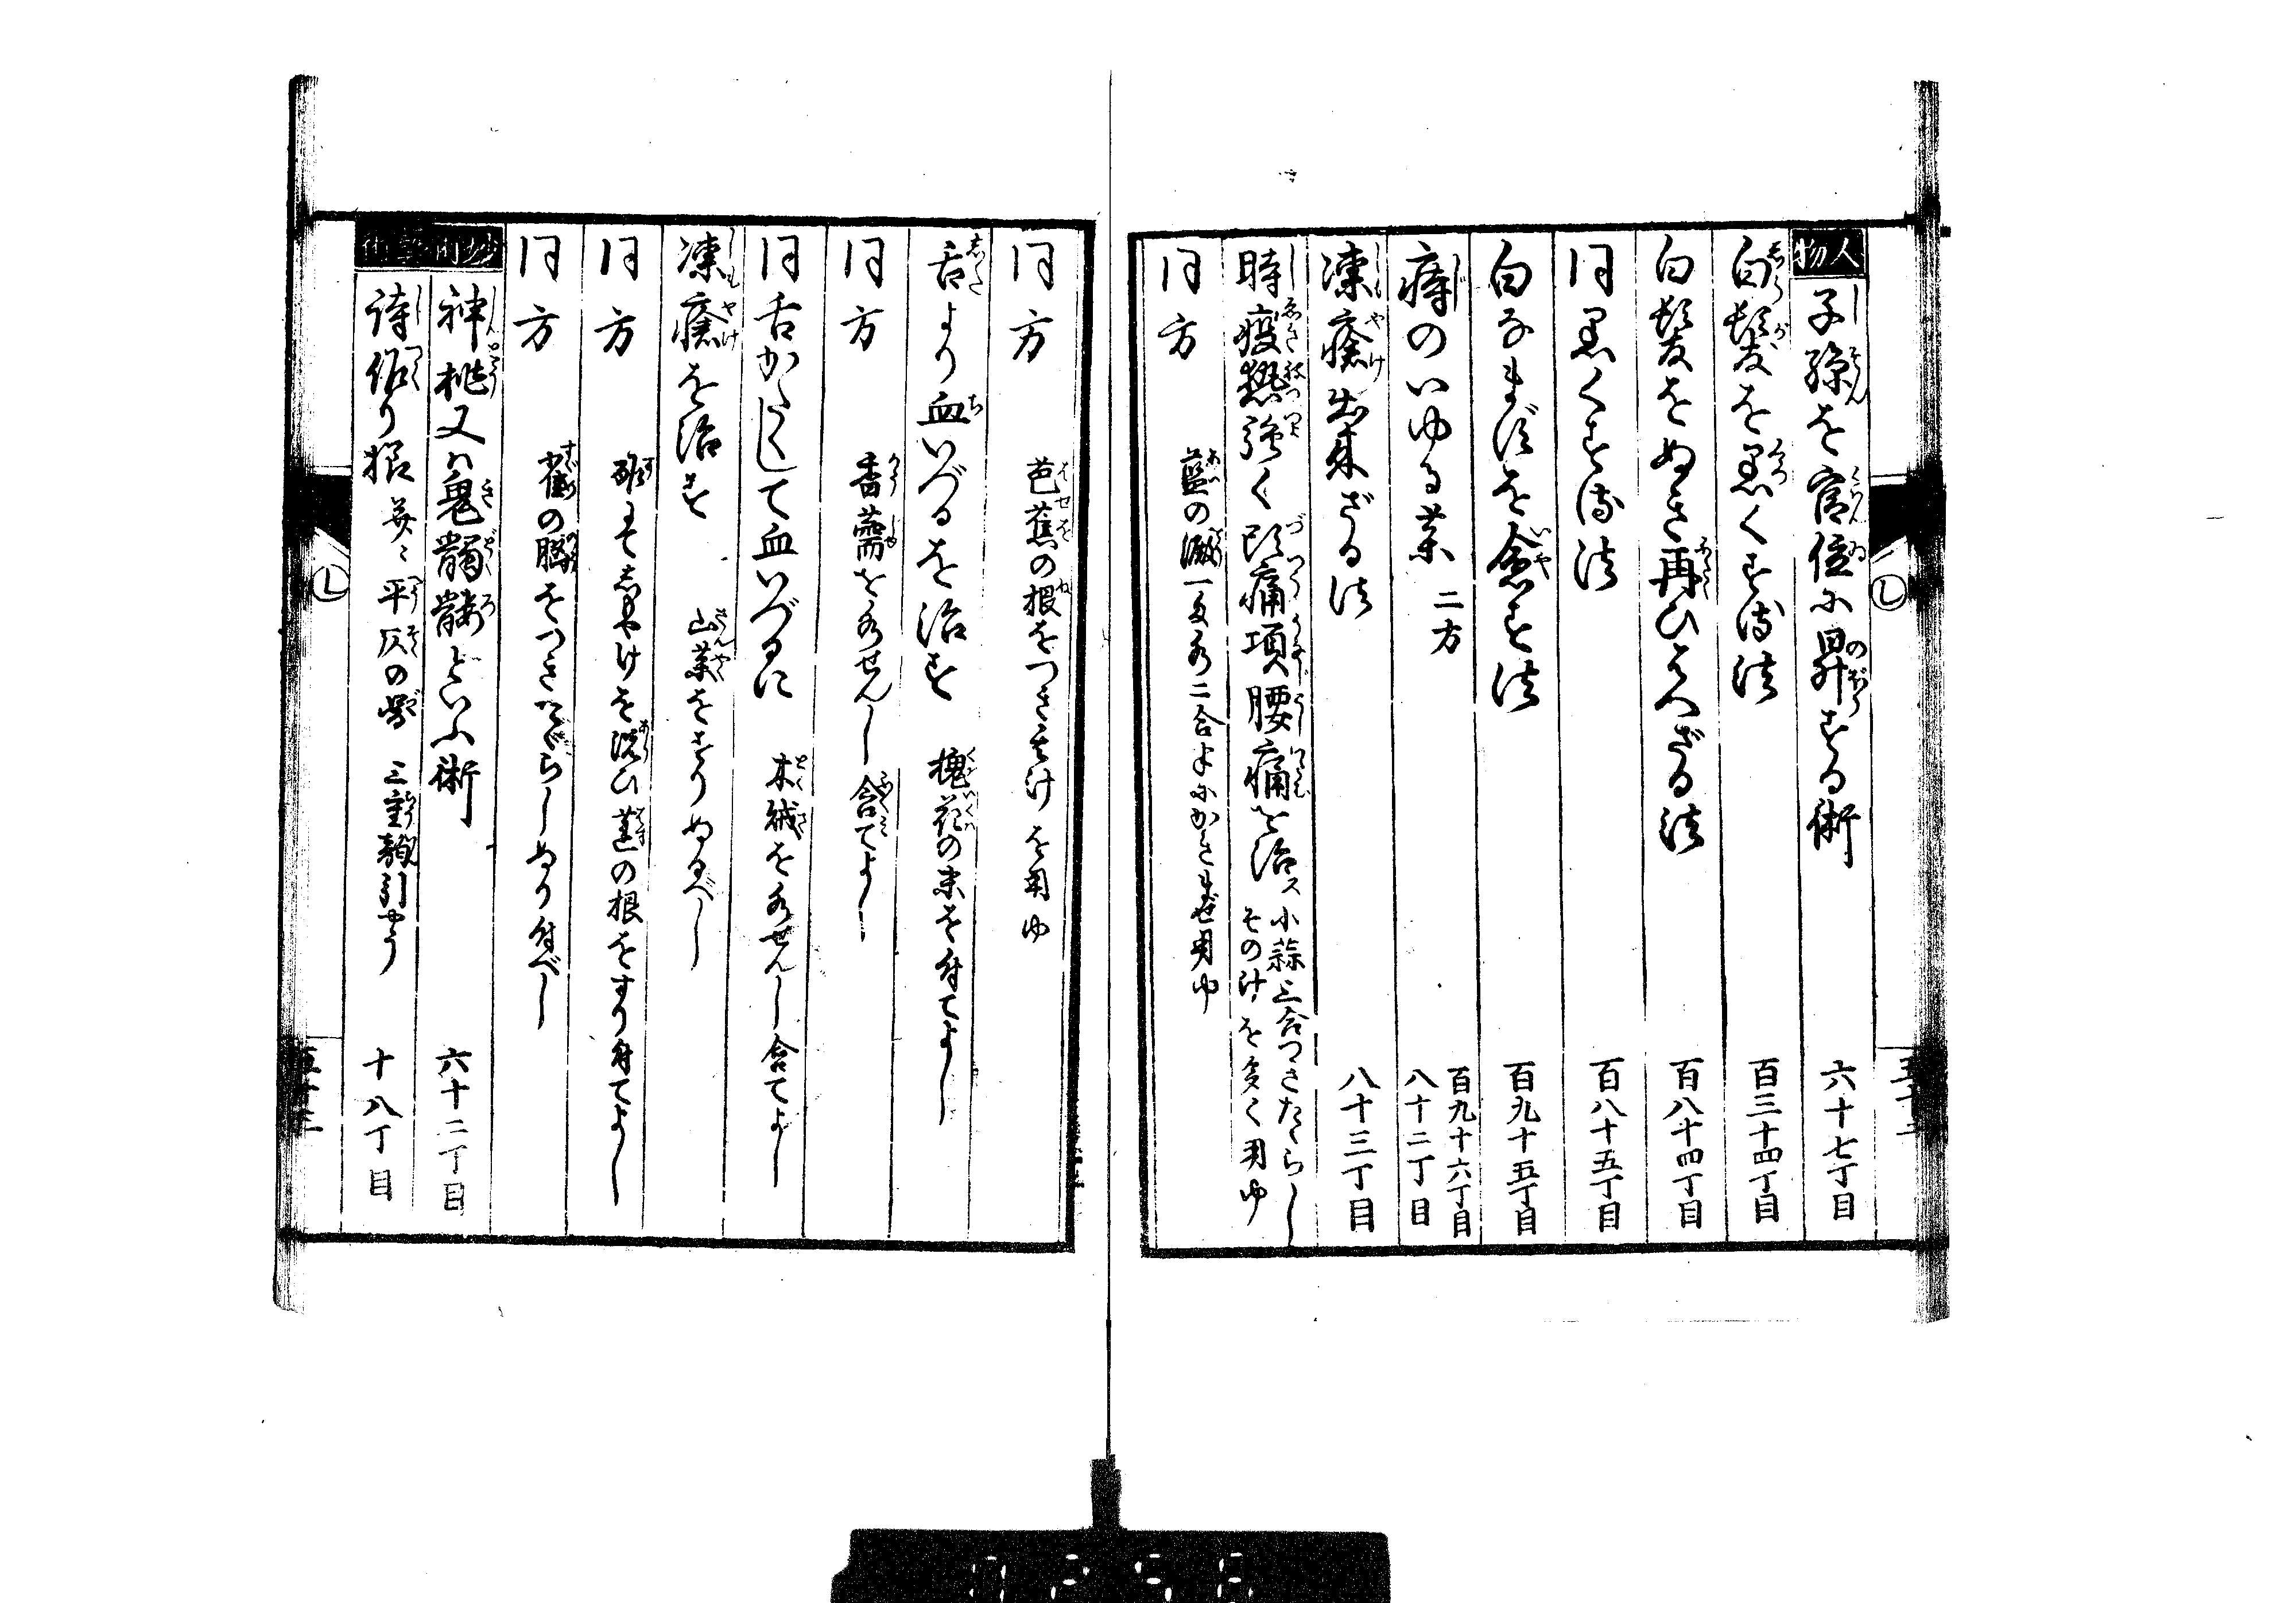 人物
子孫を官位に昇する術 六十七丁目
白髪を黒くする法 百三十四丁目
白髪をぬき再びはへざる法 百八十四丁目
同黒くする法 百八十五丁目
白なまずを愈す法 百九十五丁目
痔のいゆる薬 二方 百九十六丁目 八十二丁目
凍瘡出来ざる法 八十三丁目
時疫熱強く頭痛項腰痛を治ス 小蒜三合つきたゝらし
その汁を多く用ゆ
同方 藍の澱一匁水二合半にかきまぜ用ゆ
し
同方 芭蕉の根をつきさけを用ゆ
舌より血いづるを治す 槐花の末を付てよし
同方 香薷を水せんし含てよし
同舌かたくして血いづるに 木絨を水せんし含てよし
凍瘡を治す 山薬をすりぬるべし
同方 酢にてしもやけを洗ひ蓮の根をすり付てよし
同方 雀の脳をつきたゞらしぬり付べし
神桃又ハ鬼髑髏といふ術 六十二丁目
詩作り様 并ニ平仄の学 三重韻引やう 十八丁目
し